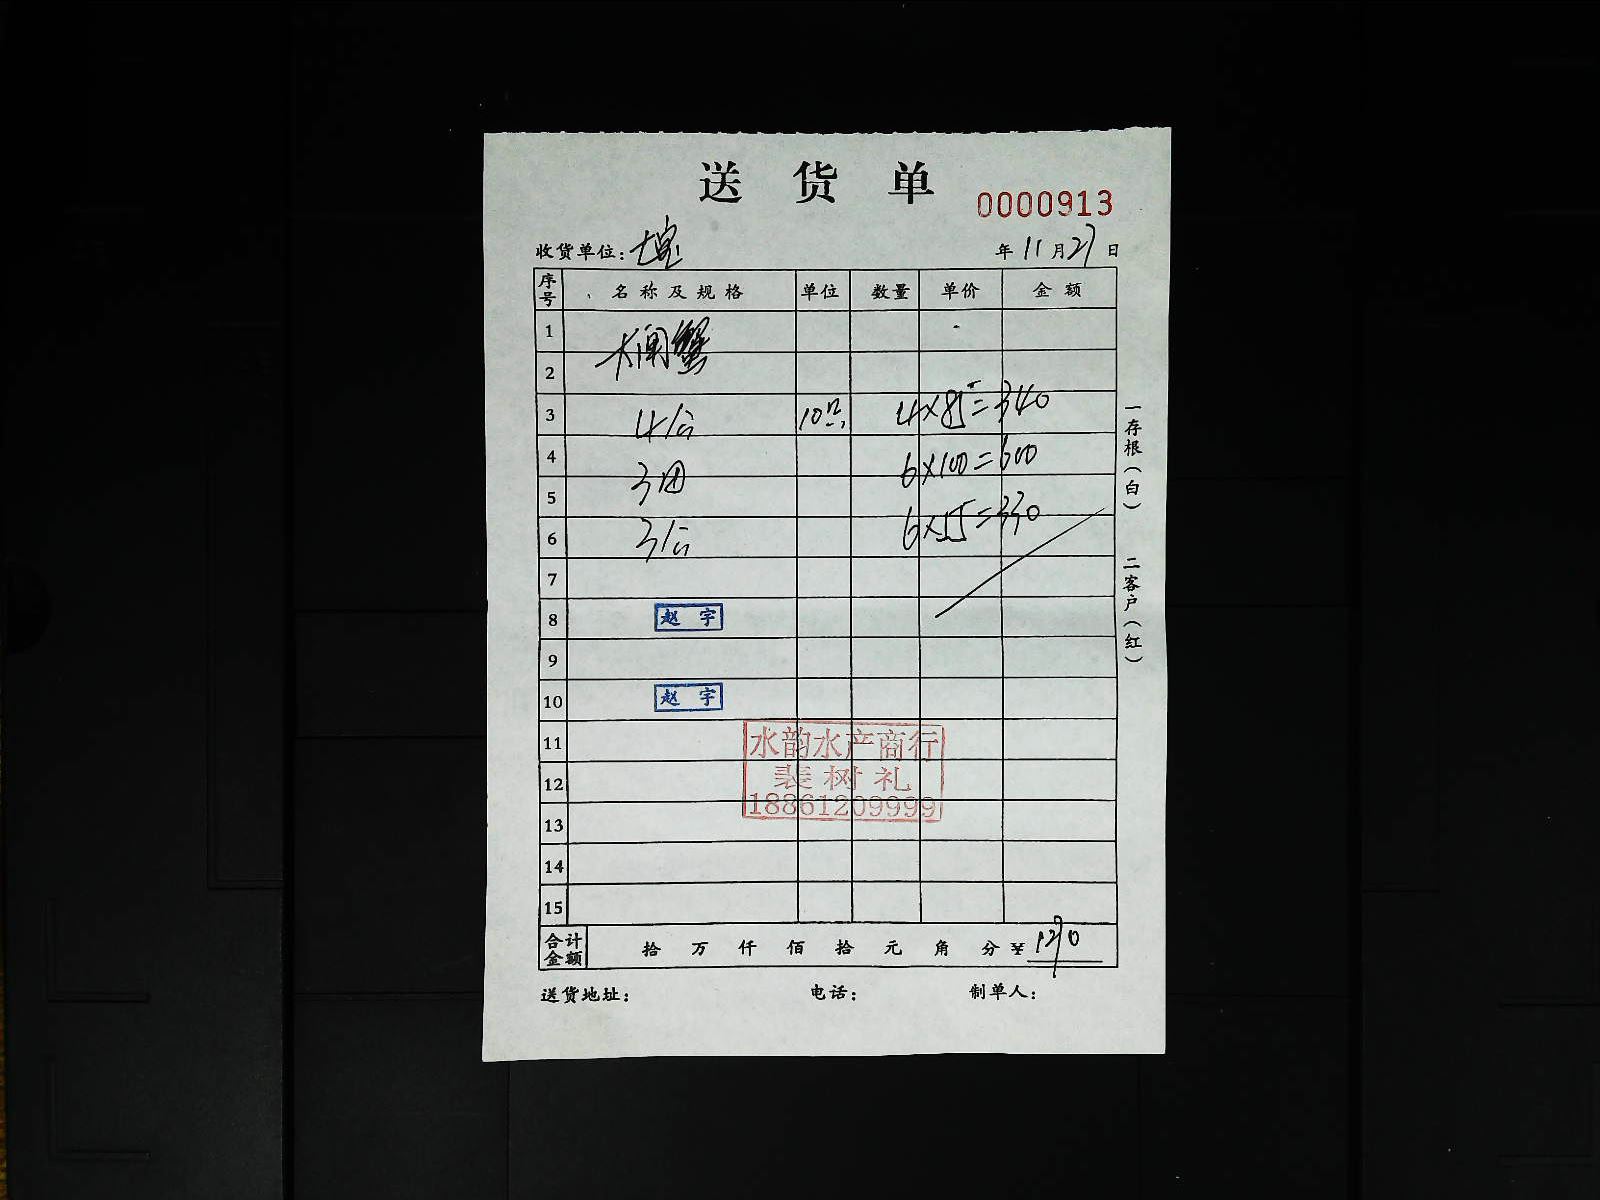 送 货 单
0000913
收货单位: 七宝 年 11 月 27 日
序号 名称及规格 单位 数量 单价 金额
1 大闸蟹
2
3 4公 10只 4×85=340
4 3团 6×100=600
5
6 3公 6×55=330
7
8 赵 宇
9
10 赵 宇
11 水韵水产商行
12 裴树礼
18861209999
13
14
15
合计金额 拾 万 仟 佰 拾 元 角 分 ¥ 1270
送货地址: 电话: 制单人:
一存根(白) 二客户(红)